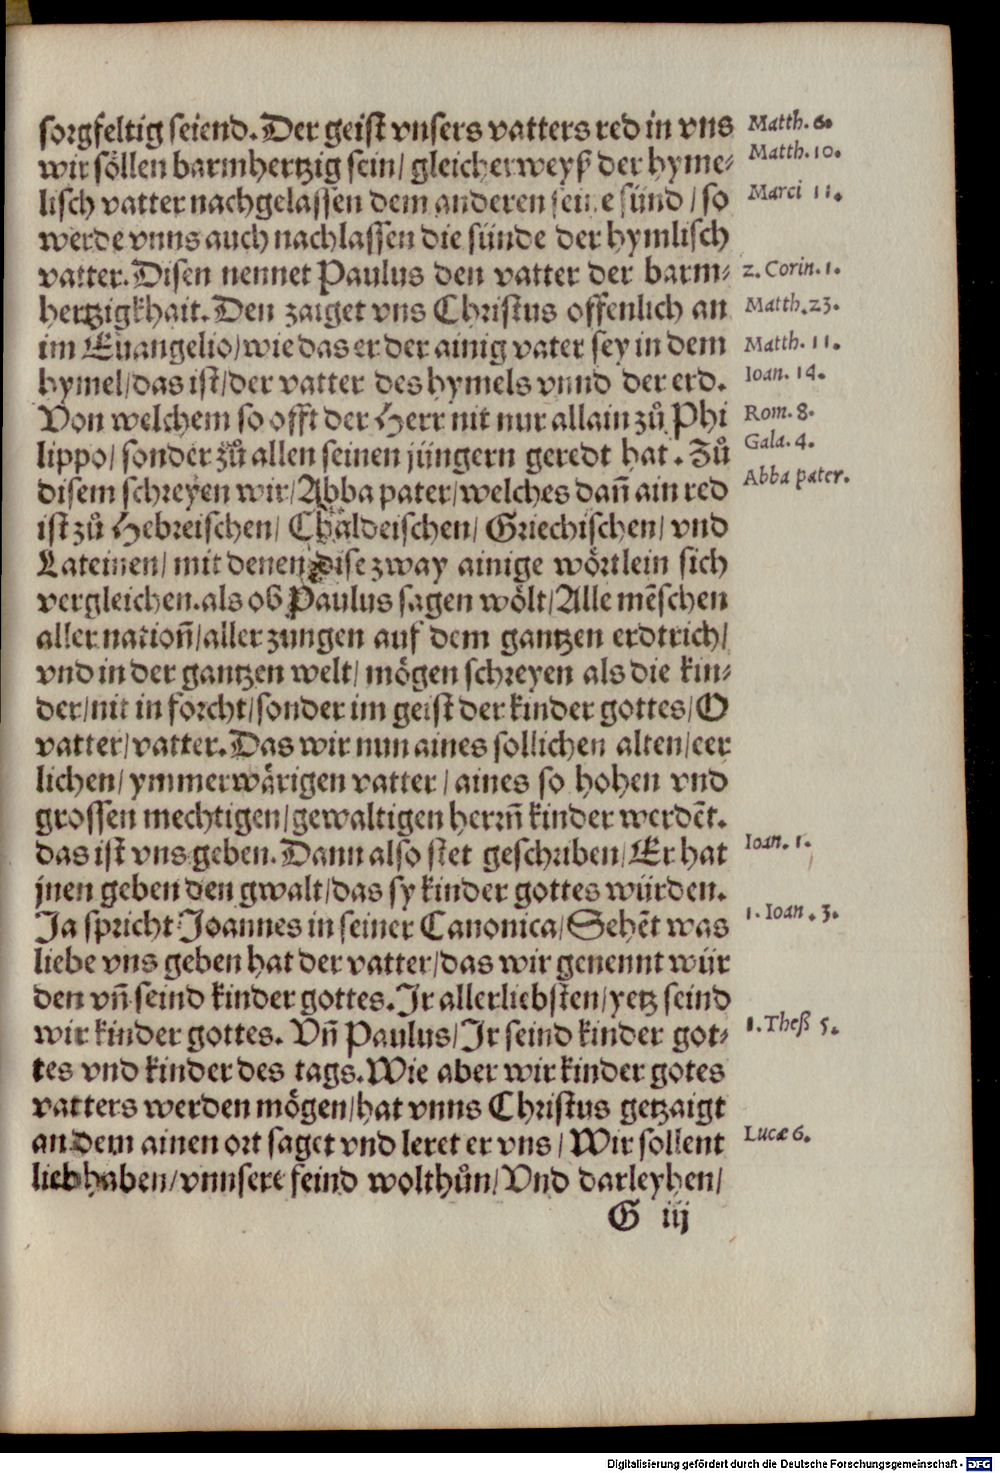 sorgfeltig seiend. Der geist vnsers vatters red in vns
Matth. 6.
wir söllen barmhertzig sein/ gleicherweyß der hyme-
Matth. 10.
lisch vatter nachgelassen dem anderen seine sünd / so
Marci 11.
werde vnns auch nachlassen die sünde der hymlisch
vatter. Disen nennet Paulus den vatter der barm-
2. Corin. 1.
hertzigkhait. Den zaiget vns Christus offenlich an
Matth. 23.
im Euangelio/ wie das er der ainig vater sey in dem
Matth. 11.
hymel/ das ist/ der vatter des hymels vnnd der erd.
Ioan. 14.
Von welchem so offt der Herr nit nur allain zů Phi
Rom. 8.
lippo/ sonder zů allen seinen jüngern geredt hat. Zů
Gala. 4.
disem schreyen wir/ Abba pater/ welches dañ ain red
Abba pater.
ist zů Hebreischen/ Chaldeischen/ Griechischen/ vnd
Lateinen/ mit denen dise zway ainige wörtlein sich
vergleichen. als ob Paulus sagen wölt/ Alle mēschen
aller nationñ/ aller zungen auf dem gantzen erdtrich/
vnd in der gantzen welt/ mögen schreyen als die kin-
der/ nit in forcht/ sonder im geist der kinder gottes/ O
vatter/ vatter. Das wir nun aines sollichen alten/ eer
lichen/ ymmerwärigen vatter / aines so hohen vnd
grossen mechtigen/ gewaltigen herrñ kinder werdēt.
das ist vns geben. Dann also stet geschriben/ Er hat
Ioan. 1.
jnen geben den gwalt/ das sy kinder gottes würden.
Ja spricht Joannes in seiner Canonica/ Sehēt was
1. Ioan. 3.
liebe vns geben hat der vatter/ das wir genennt wür
den vñ seind kinder gottes. Jr allerliebsten/ yetz seind
wir kinder gottes. Vñ Paulus/ Jr seind kinder got-
1. Theß 5.
tes vnd kinder des tags. Wie aber wir kinder gotes
vatters werden mögen/ hat vnns Christus getzaigt
an dem ainen ort saget vnd leret er vns / Wir sollent
Lucæ 6.
lieb haben/ vnnsere feind wolthůn/ Vnd darleyhen/
G iij
Digitalisierung gefördert durch die Deutsche Forschungsgemeinschaft - DFG